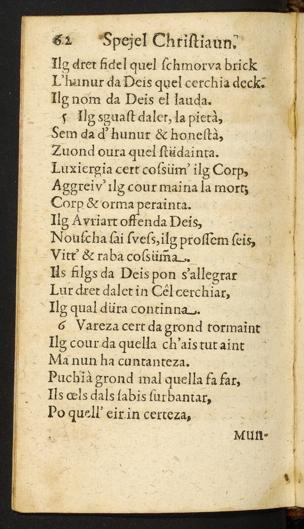 62 Spejel Christiaun.
Ilg dret fidel quel schmorva brick
L'hunur da Deis quel cerchia deck.
Ilg nom da Deis el lauda.
5 Ilg sguast dalet, la pietà,
Sem da d'hunur & honestà,
Zuond oura quel stüdainta.
Luxiergia cert cossüm' ilg Corp,
Aggreiv' ilg cour maina la mort;
Corp & orma perainta.
Ilg Avriart offenda Deis,
Nouscha sai svess, ilg prossem seis,
Vitt' & raba cossüma.
Ils filgs da Deis pon s'allegrar
Lur dret dalet in Cêl cerchiar,
Ilg qual düra continna.
6 Vareza cert da grond tormaint
Ilg cour da quella ch'ais tut aint
Ma nun ha cuntanteza.
Puchià grond mal quella fa far,
Ils œls dals sabis surbantar,
Po quell' eir in certeza,
Mun-